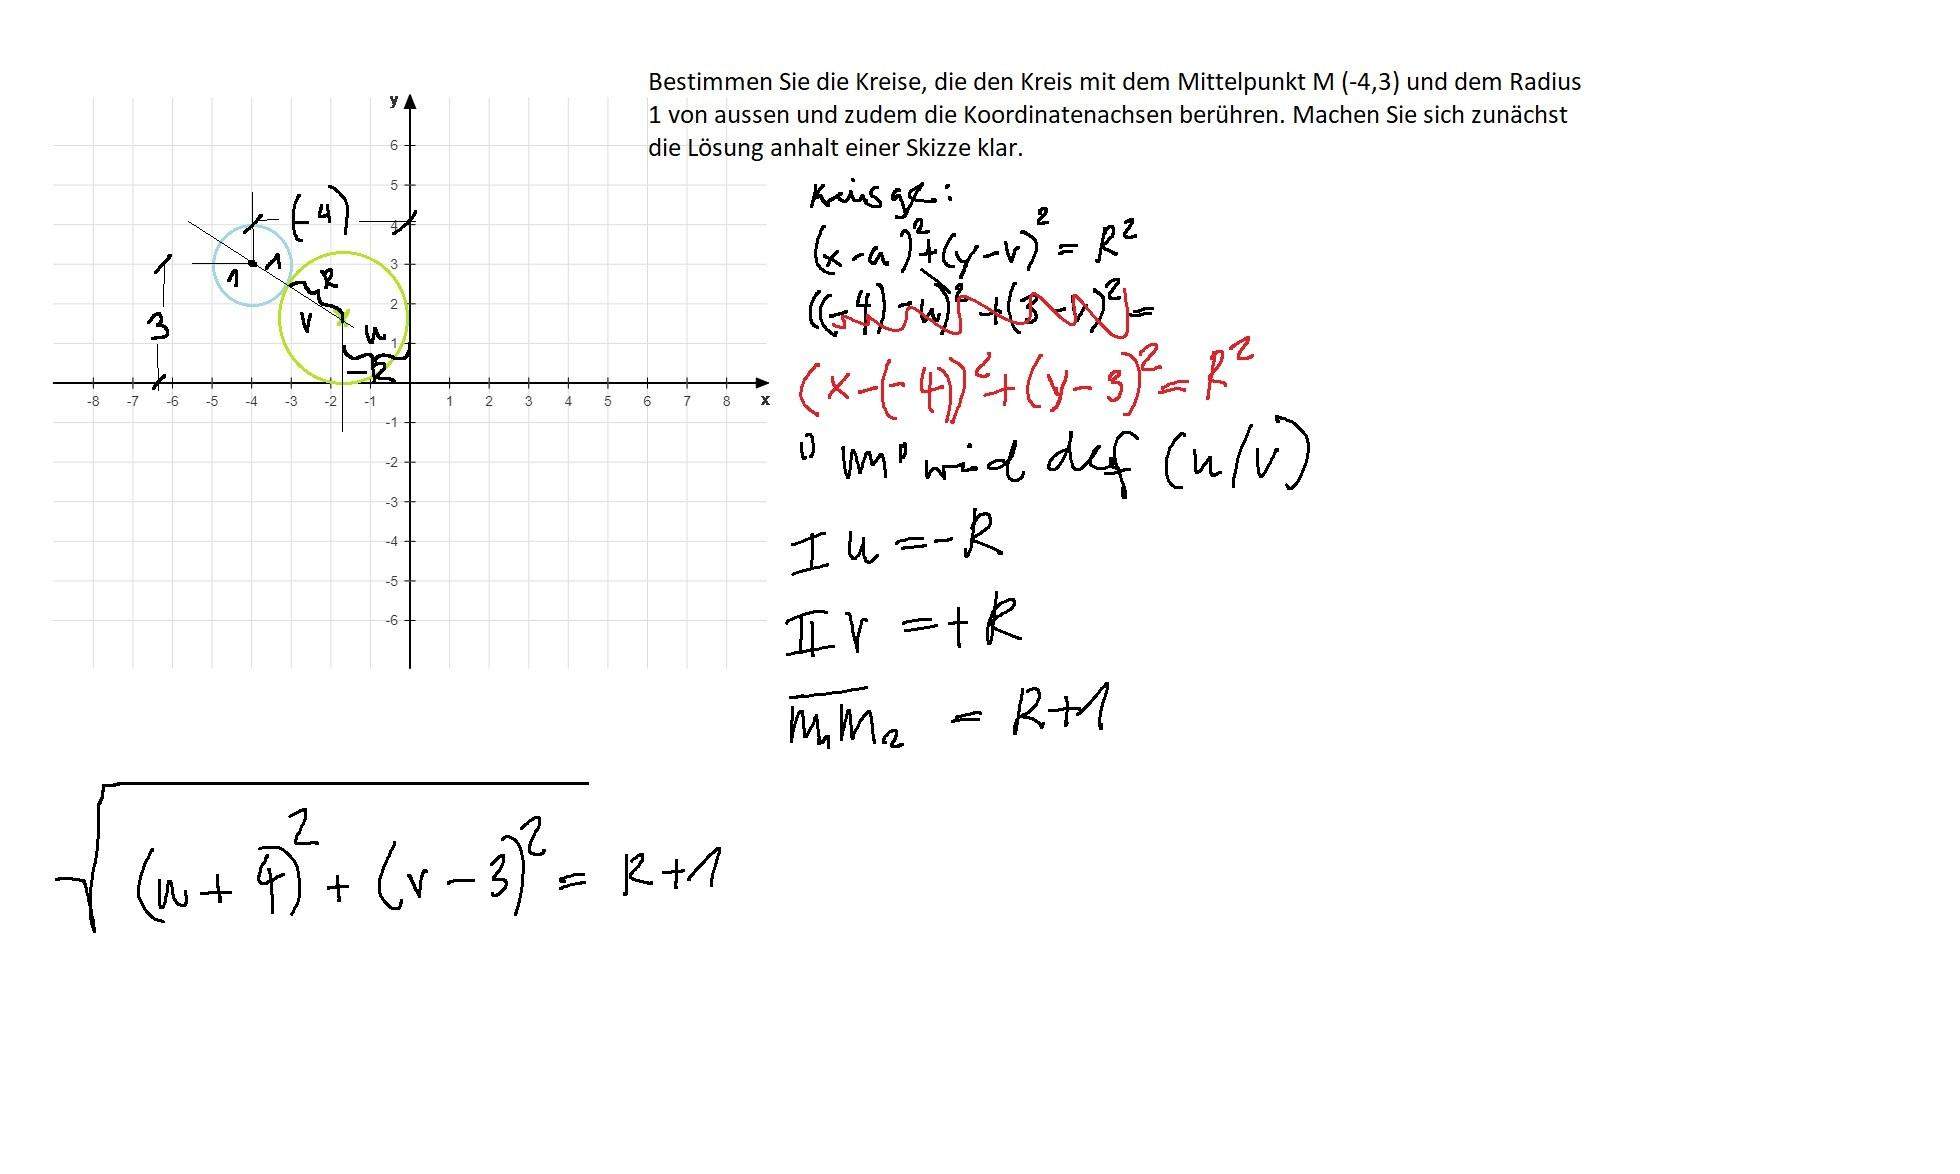 Bestimmen Sie die Kreise, die den Kreis mit dem Mittelpunkt M (-4,3) und dem Radius
1 von aussen und zudem die Koordinatenachsen berühren. Machen Sie sich zunächst
die Lösung anhalt einer Skizze klar.
y
6
5
4
3
2
1
-8 -7 -6 -5 -4 -3 -2 -1 1 2 3 4 5 6 7 8 x
-1
-2
-3
-4
-5
-6
(-4)
3
1 1
R
v u
-R
Kreisgl:
(x-u)²+(y-v)² = R²
((-4)-u)²+(3-v)² =
(x-(-4))²+(y-3)² = R²
"M" wird def (u/v)
I u = -R
II v = +R
M₁M₂ = R+1
√(u+4)² + (v-3)² = R+1